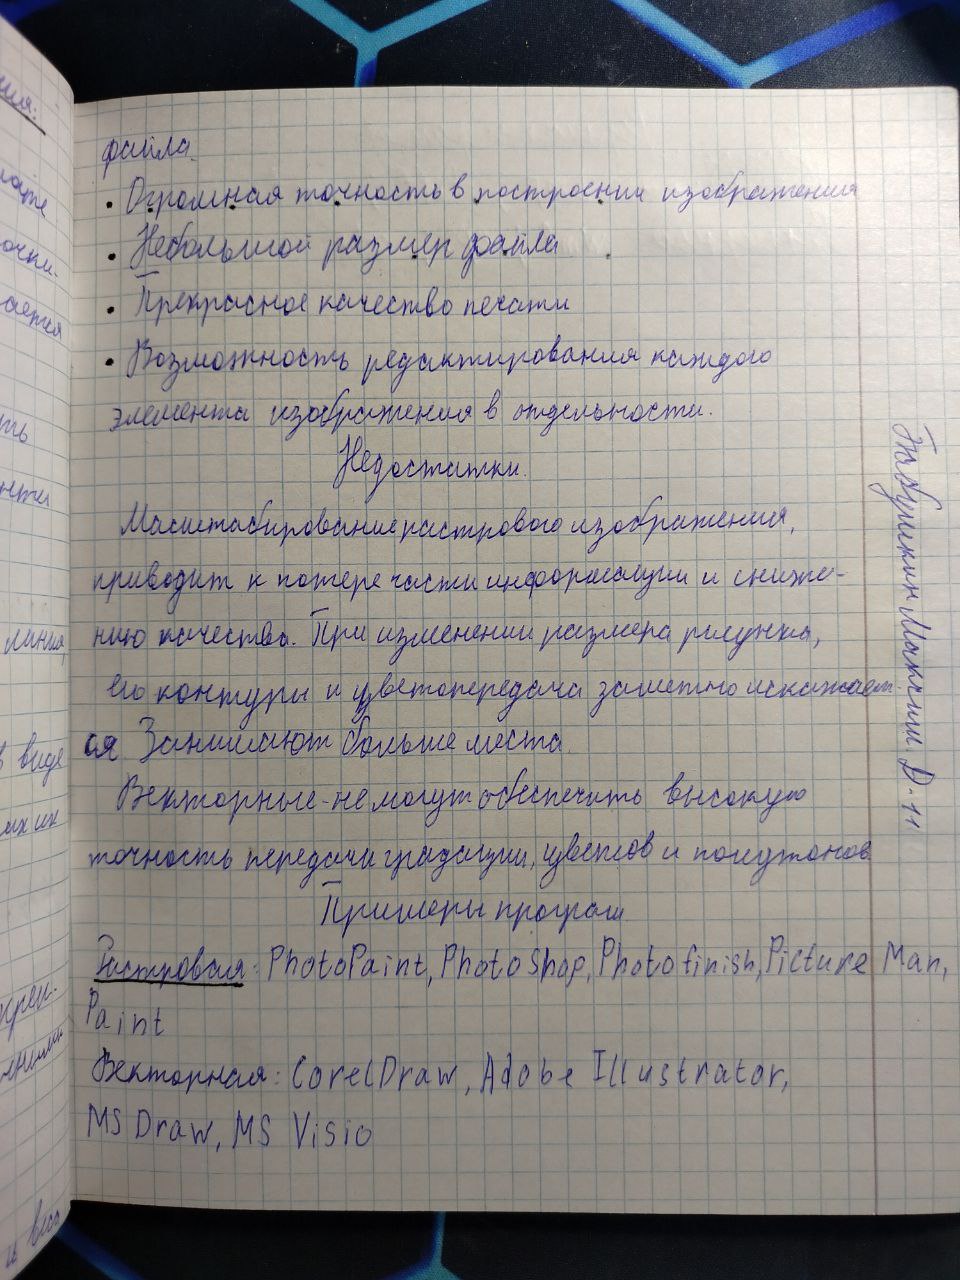 файла.
• Огромная точность в построении изображения
• Небольшой размер файла
• Прекрасное качество печати
• Возможность редактирования каждого
элемента изображения в отдельности.
Недостатки.
Масштабирование растрового изображения,
приводит к потере части информации и сниже-
нию качества. При изменении размера рисунка,
его контуры и цветопередача заметно искажает-
ся Занимают больше места
Векторные - не могут обеспечить высокую
точность передачи градации, цветов и полутонов
Примеры програм
Растровая: PhotoPaint, PhotoShop, Photofinish, Picture Man,
Paint
Векторная: CorelDraw, Adobe Illustrator,
MS Draw, MS Visio
Максим Д-11
ния:
очки-
ается
ть
в виде
их их
и весь